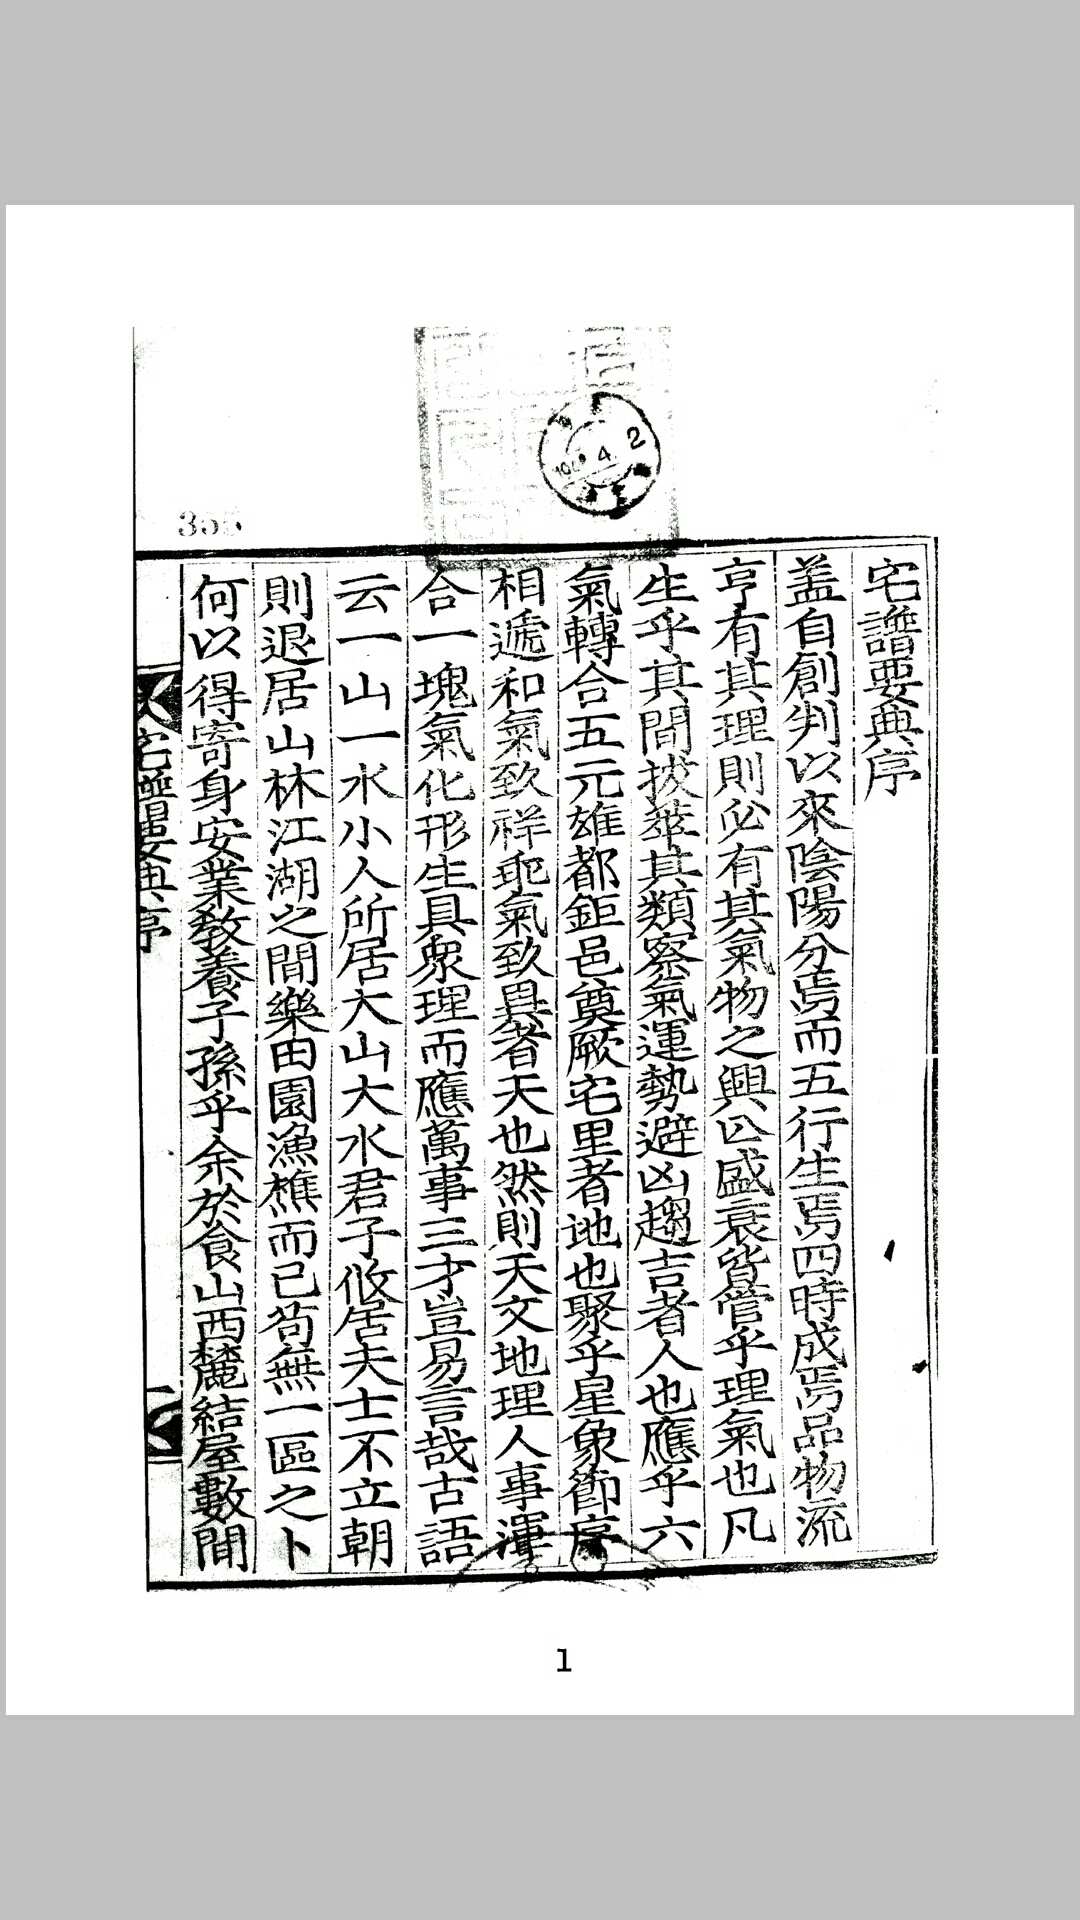 宅譜要典序
盖自創判以來陰陽分焉而五行生焉四時成焉品物流
亨有其理則必有其氣物之興亾盛衰皆管乎理氣也凡
生乎其間拔萃其類察氣運勢避凶趨吉者人也應乎六
氣轉合五元雄都鉅邑奠厥宅里者地也聚乎星象節序
相遞和氣致祥乖氣致異者天也然則天文地理人事渾
合一塊氣化形生具衆理而應萬事三才豈易言哉古語
云一山一水小人所居大山大水君子攸居夫士不立朝
則退居山林江湖之間樂田園漁樵而已苟無一區之卜
何以得寄身安業教養子孫乎余於食山西麓結屋數間
宅譜要典序
一
4 2
1